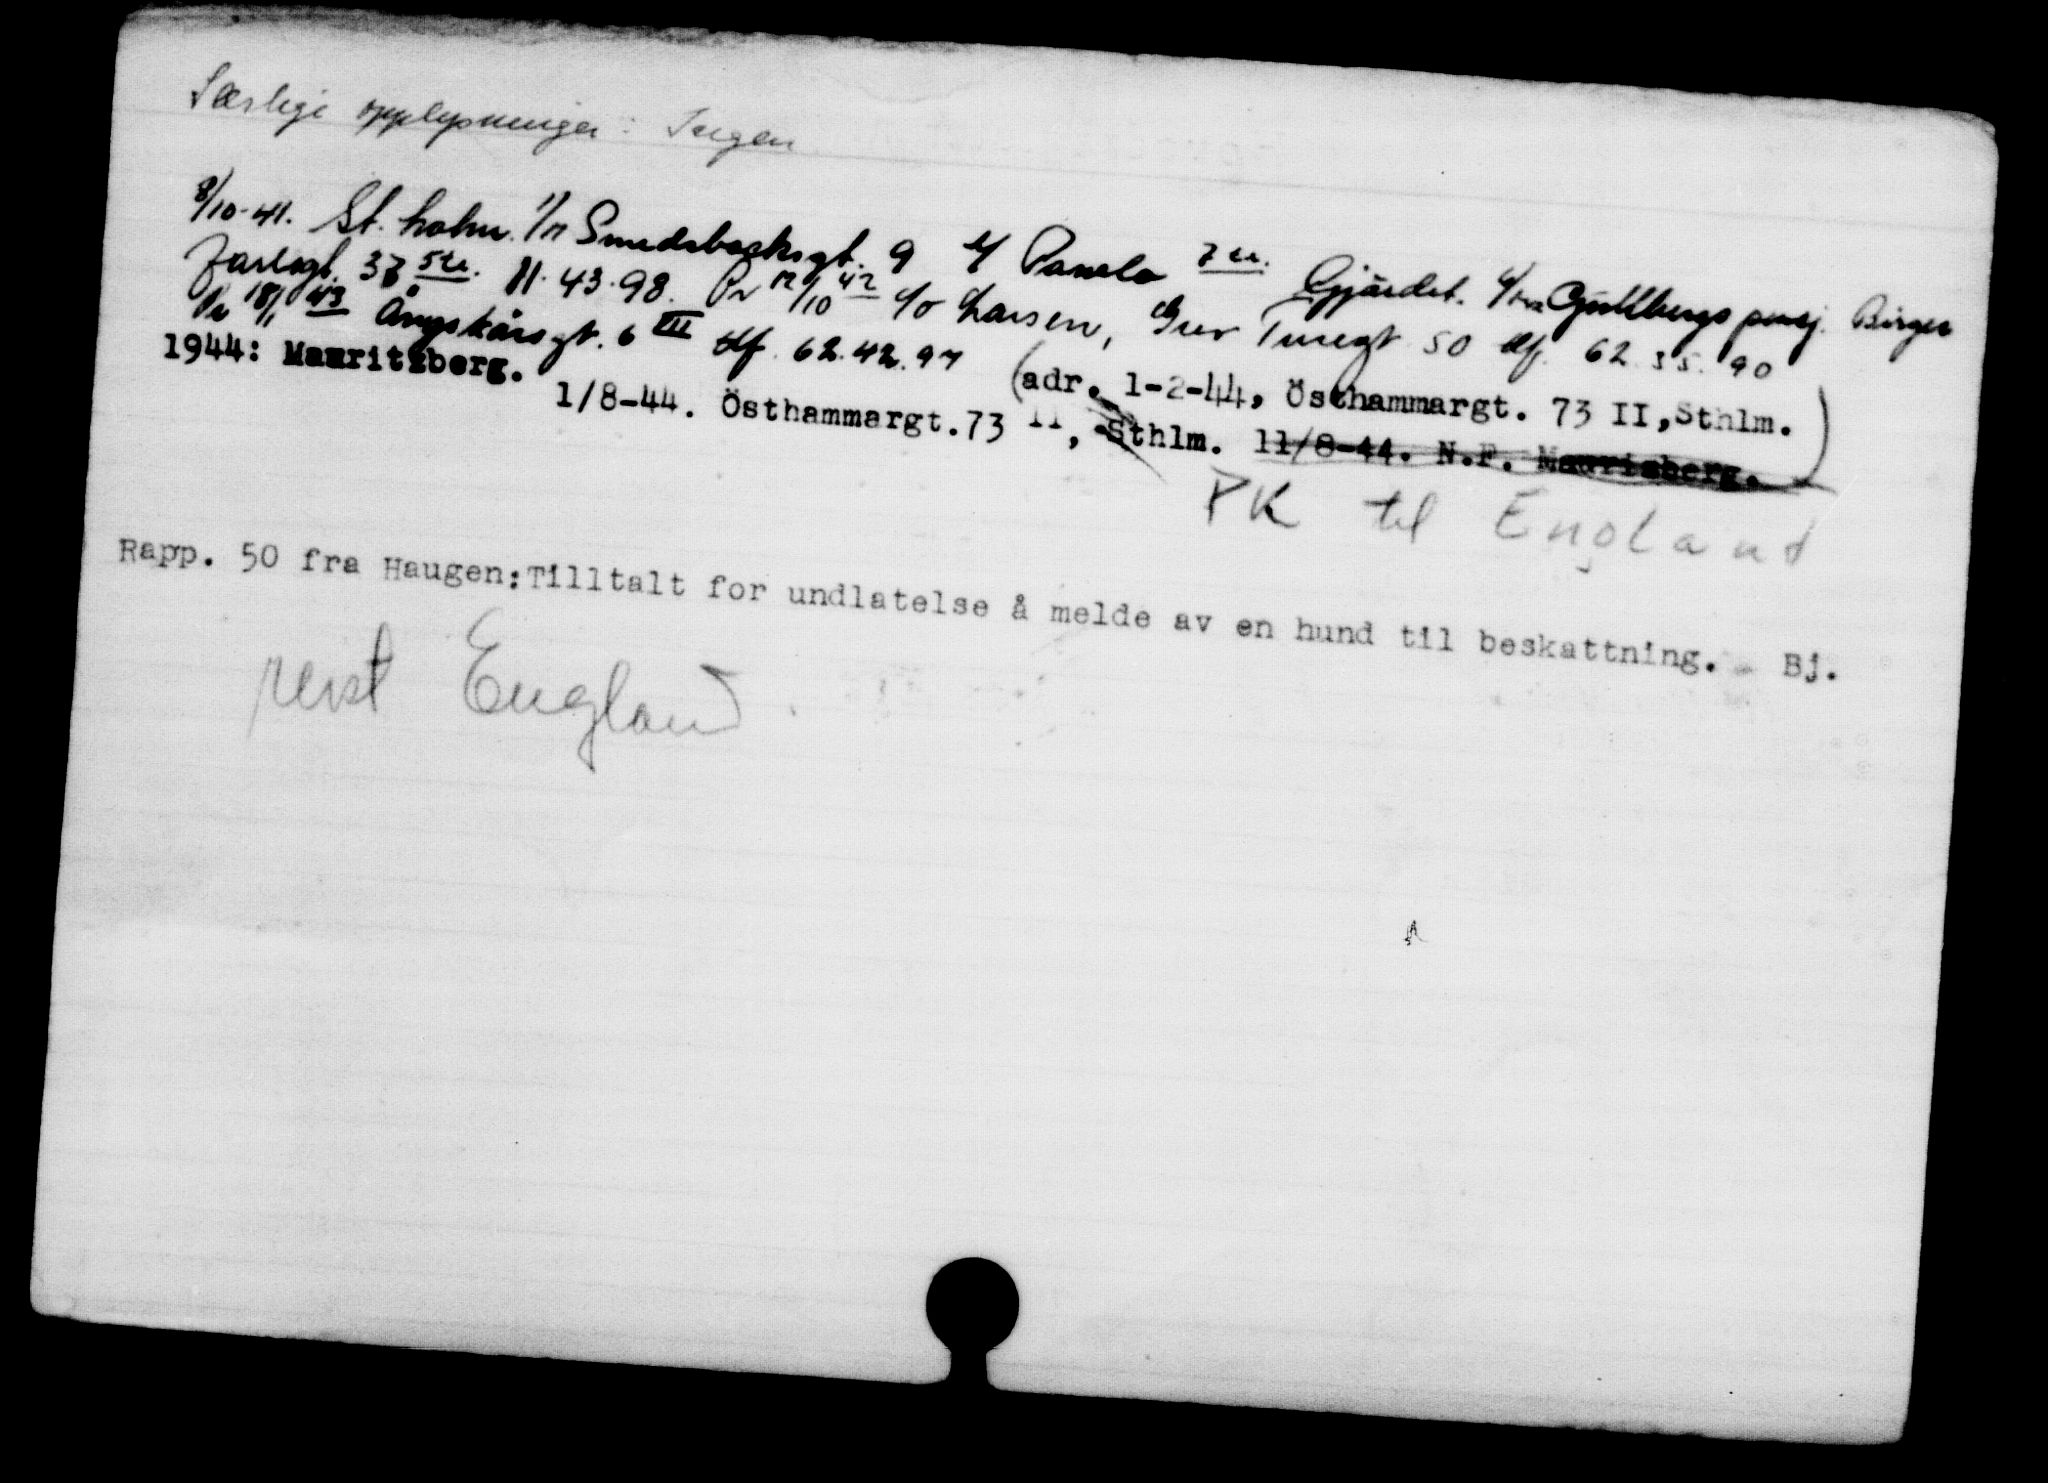 Særlige opplysninger: Ingen
8/10-41. St. holm. Smedsbacksgt. 9 c/ Panelo 7 tr. Gjärdet. Gullbergs pensj. Birger
Jarlsgt. 37 5 tr. 11.43.98. Pr 12/10 42 c/o Larsen, Grev Turegt 50 tlf. 62.35.90
Pr 18/1 43 Ängskärsgt. 6 III tlf. 62.42.97 (adr. 1-2-44, Östhammargt. 73 II, Sthlm.)
1944: Mauritzberg. 1/8-44. Östhammargt.73 II, Sthlm. 11/8-44. N.F. Maurisberg.
PK til England
Rapp. 50 fra Haugen:Tilltalt for undlatelse å melde av en hund til beskattning. Bj.
reist England.